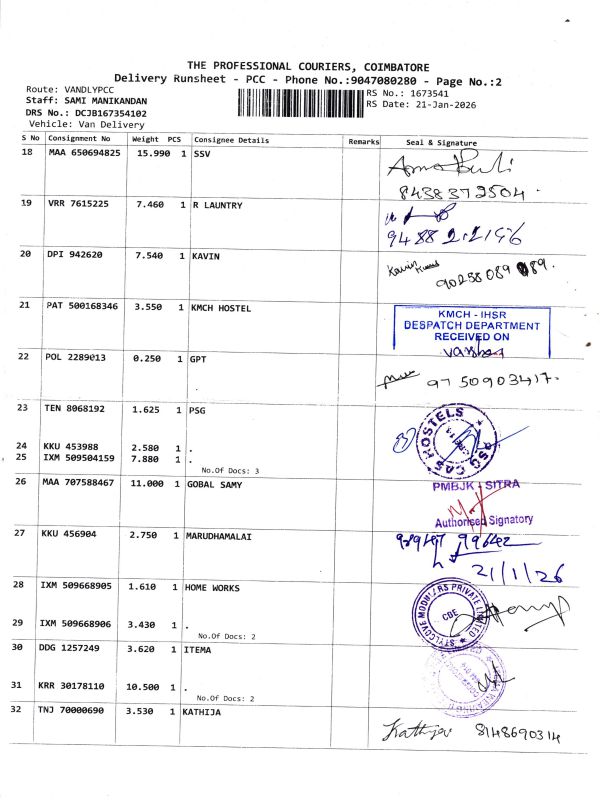 THE PROFESSIONAL COURIERS, COIMBATORE
Delivery Runsheet - PCC - Phone No.:9047080280 - Page No.:2
Route: VANDLYPCC
RS No.: 1673541
Staff: SAMI MANIKANDAN
RS Date: 21-Jan-2026
DRS No.: DCJB167354102
Vehicle: Van Delivery
S No Consignment No Weight PCS Consignee Details Remarks Seal & Signature
18 MAA 650694825 15.990 1 SSV
8438372504.
19 VRR 7615225 7.460 1 R LAUNTRY
9488
20 DPI 942620 7.540 1 KAVIN
Kavin Kumar
90258089 89.
21 PAT 500168346 3.550 1 KMCH HOSTEL
KMCH - IHSR
DESPATCH DEPARTMENT
RECEIVED ON
22 POL 2289013 0.250 1 GPT
9750903417.
23 TEN 8068192 1.625 1 PSG
PSG CAS HOSTELS
24 KKU 453988 2.580 1 .
25 IXM 509504159 7.880 1 .
No.Of Docs: 3
26 MAA 707588467 11.000 1 GOBAL SAMY
PMBJK - SITRA
Authorised Signatory
27 KKU 456904 2.750 1 MARUDHAMALAI
21/1/26
28 IXM 509668905 1.610 1 HOME WORKS
STYLCOVE MODULARS PRIVATE LIMITED
CBE
29 IXM 509668906 3.430 1 .
No.Of Docs: 2
30 DDG 1257249 3.620 1 ITEMA
31 KRR 30178110 10.500 1 .
No.Of Docs: 2
32 TNJ 70000690 3.530 1 KATHIJA
Kathija 8148690314